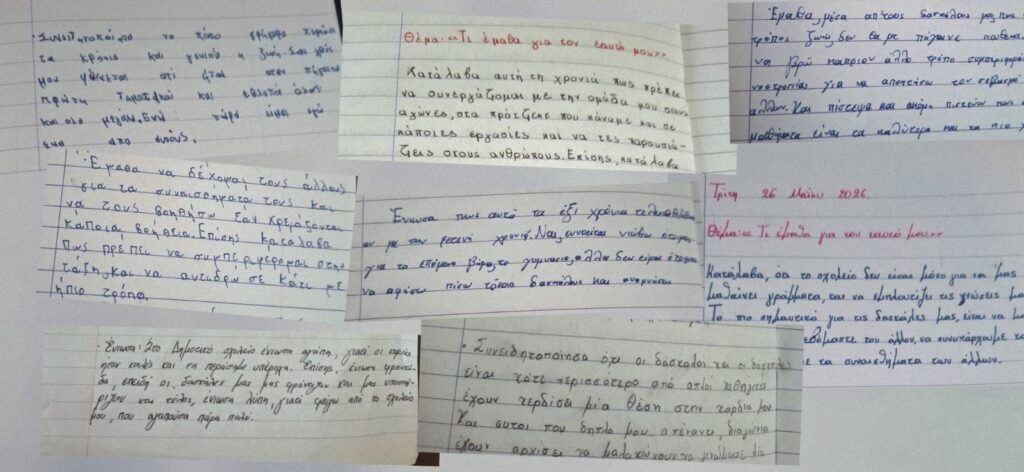 · Συνειδητοποίησα το πόσο γρήγορα περνάνε
τα χρόνια και γενικά η ζωή. Σαν χθες
μου φαίνεται ότι ήταν που πήγαινα
πρώτη Δημοτικού και έβλεπα όλους
και όλα μεγάλα. Ενώ τώρα είμαι εγώ
ένα από αυτούς.
Θέμα: «Τι έμαθα για τον εαυτό μου»
Κατάλαβα αυτή τη χρονιά πως πρέπει
να συνεργάζομαι με την ομάδα μου στους
αγώνες, στα πρότζεκτ που κάναμε και σε
κάποιες εργασίες και να τες παρουσιά-
ζεις στους ανθρώπους. Επίσης, κατάλαβα
Έμαθα, μέσα από τους δασκάλους μας, πως
τρόπος ζωής δεν θα με πήγαινε πουθενά.
να βρω καποιον άλλο τρόπο συμπεριφοράς
νοοτροπίας για να αποκτήσω τον σεβασμό
άλλων. Και πίστεψα και ακόμη πιστεύω πως
μαθήματα είναι τα καλύτερα και τα πιο
· Έμαθα να δέχομαι τους άλλους
για τα συναισθήματά τους και
να τους βοηθήσω εάν χρειάζονται
κάποια βοήθεια. Επίσης κατάλαβα
πως πρέπει να συμπεριφέρομαι στην
τάξη, και να αντιδρώ σε κάτι με
ήπιο τρόπο.
Ένιωσα πως αυτά τα έξι χρόνια
με την φετινή χρονιά. Ναι, εννοείται νιώθω έτοιμη
για το επόμενο βήμα, το γυμνάσιο, αλλά δεν είμαι έτοιμη
να αφήσω πίσω τόσους δασκάλους και αναμνήσεις
Τρίτη 26 Μαΐου 2026.
Θέμα: «Τι έμαθα για τον εαυτό μου»
Κατάλαβα, ότι το σχολείο δεν είναι μόνο για να μας
μαθαίνει γράμματα, και να εμπλουτίζει τις γνώσεις μα
Το πιο σημαντικό για τις δασκάλες μας, είναι να μα
εβόμαστε τον άλλον, να συνυπάρχουμε
ε τα συναισθήματα των άλλων.
· Ένιωσα: Στο Δημοτικό σχολείο ένιωσα αγάπη, γιατί οι
ήταν καλές και τα περάσαμε υπέροχα. Επίσης, ένιωσα φροντί-
δα, επειδή οι δασκάλες μας μας φρόντιζαν και μας υποστή-
ριζαν και τέλος, ένιωσα λύπη, γιατί φεύγω από το σχολείο
μου, που αγαπούσα πάρα πολύ.
· Συνειδητοποίησα ότι οι δάσκαλοι και οι δασκάλες
είναι κάτι περισσότερο από απλοί καθηγητές
έχουν κερδίσει μία θέση στην καρδιά μου
Και αυτοί που δηπλα μου, απέναντι, διαγώνια
έχουν αρχίσει να μαλακώνουν τα